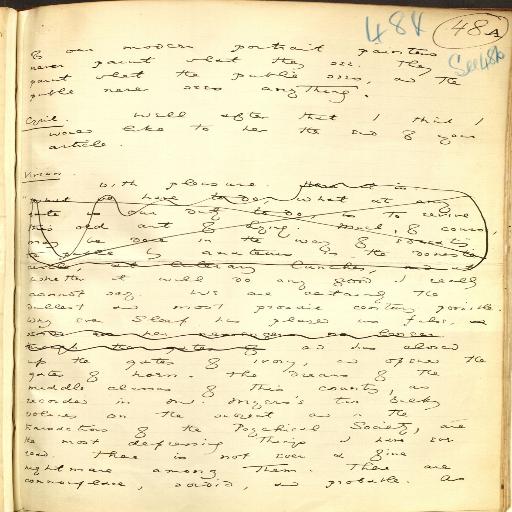 484
48A
See 48b
of our modern portrait painters
never paint what they see. They
paint what the public sees, and the
public never sees anything.
Cyril. Well after that I think I
would like to hear the end of your
article.
Vivian.
With pleasure.
what at any
rate is our duty to do, is to revive
this old art of Lying. Much, of course,
may be done in the way of educating
by amateurs in the domestic
circle, at literary lunches, and at
Whether it will do any good I really
cannot say. We are certainly the
dullest and most prosaic century possible.
Why even Sleep has played us false,
and has closed
up the gates of ivory, and opened the
gates of horn. The dreams of the
middle classes of this country, as
recorded in Mr. Myers's two bulky
volumes on the subject and in the
Transactions of the Psychical Society, are
the most depressing things I have ever
read. There is not even a fine
nightmare among them. They are
commonplace, sordid, and probable. As